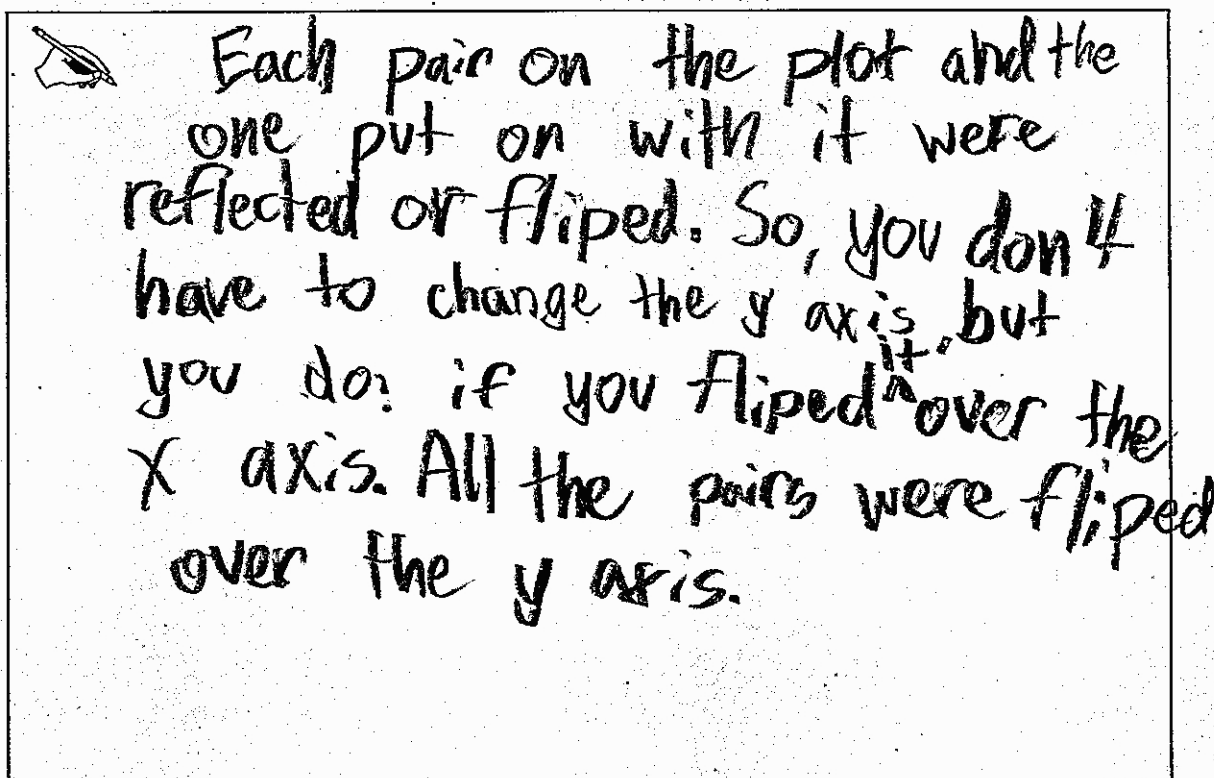 Each pair on the plot and the
one put on with it were
reflected or fliped. So, you don't
have to change the y axis, but
you do. if you fliped it over the
x axis. All the pairs were fliped
over the y axis.